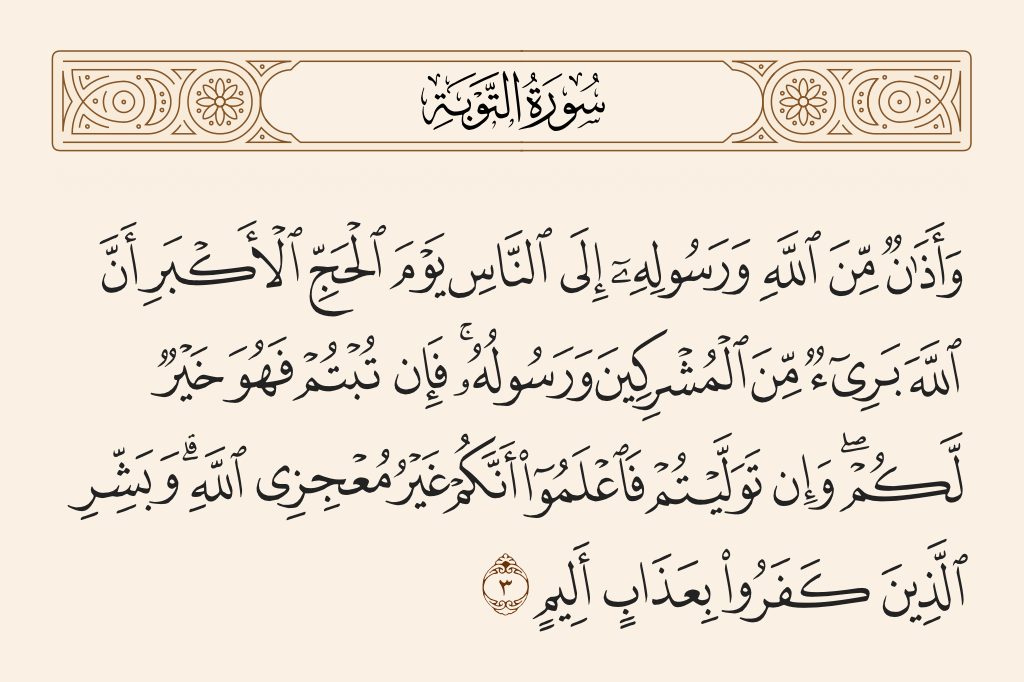 سُورَةُ التَّوۡبَةِ
وَأَذَٰنٞ مِّنَ ٱللَّهِ وَرَسُولِهِۦٓ إِلَى ٱلنَّاسِ يَوۡمَ ٱلۡحَجِّ ٱلۡأَكۡبَرِ أَنَّ
ٱللَّهَ بَرِيٓءٞ مِّنَ ٱلۡمُشۡرِكِينَ وَرَسُولُهُۥۚ فَإِن تُبۡتُمۡ فَهُوَ خَيۡرٞ
لَّكُمۡۖ وَإِن تَوَلَّيۡتُمۡ فَٱعۡلَمُوٓاْ أَنَّكُمۡ غَيۡرُ مُعۡجِزِي ٱللَّهِۗ وَبَشِّرِ
ٱلَّذِينَ كَفَرُواْ بِعَذَابٍ أَلِيمٍ ٣